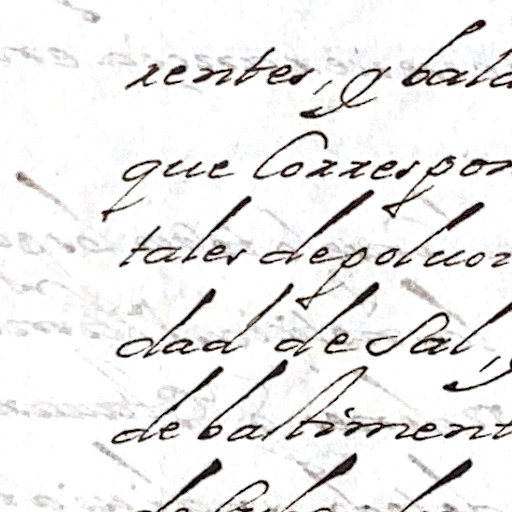 rentes, y bala
que Correspon
tales de poluor
dad de Sal, y
de bastiment